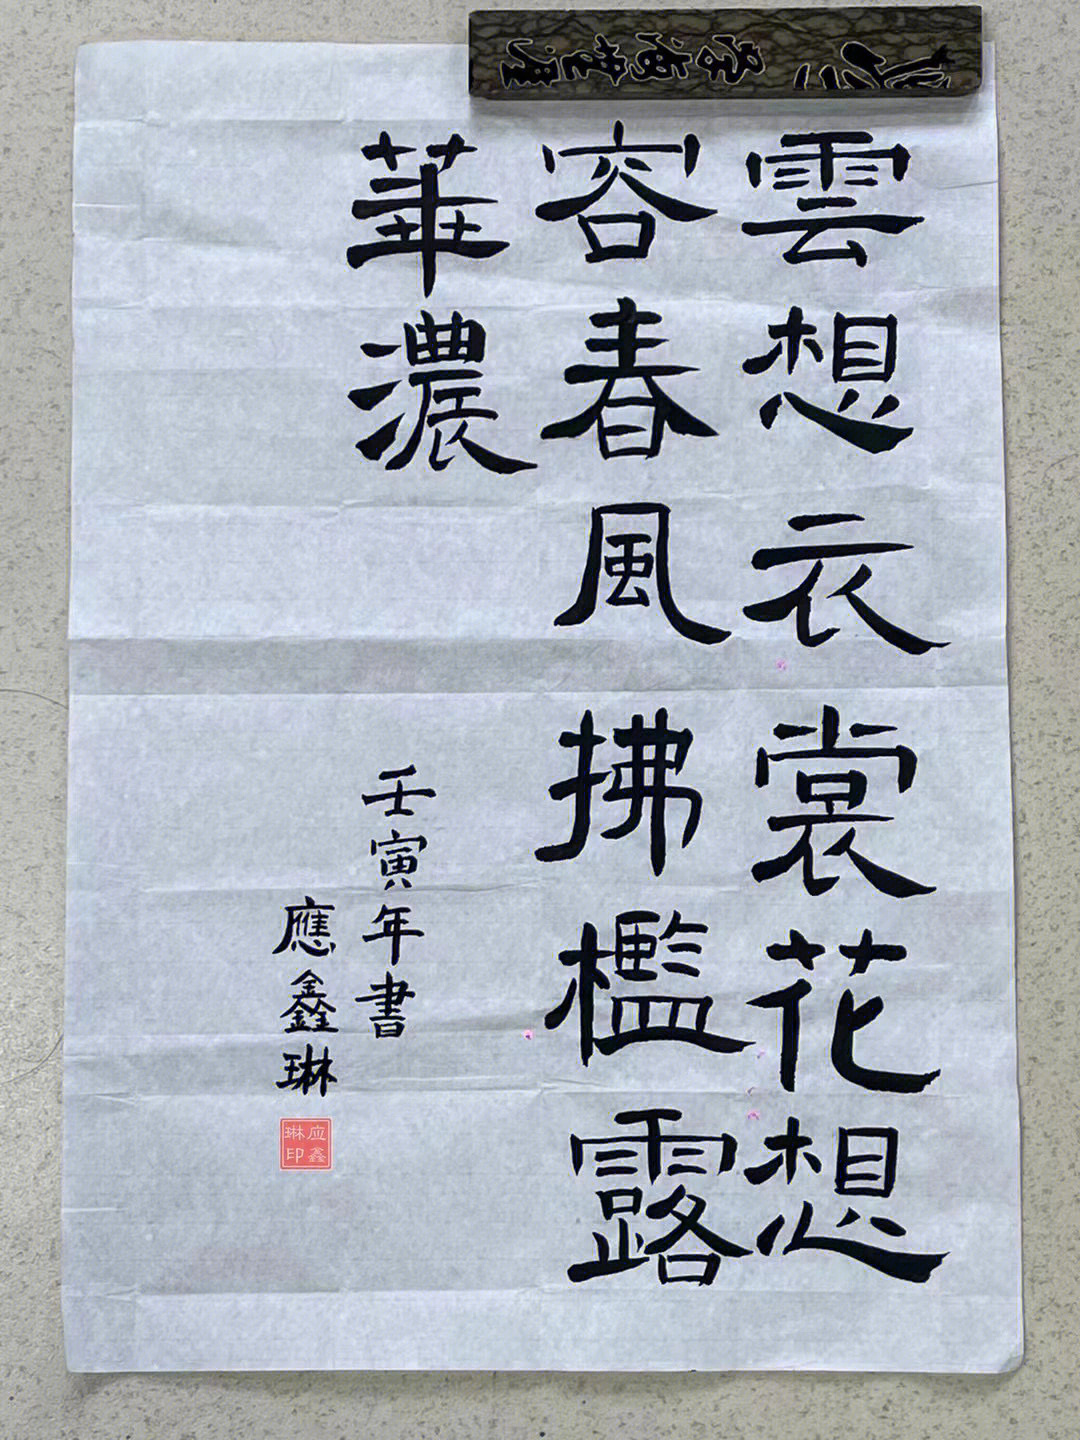 雲想衣裳花想
容春風拂檻露
華濃
壬寅年書
應鑫琳
应鑫
琳印